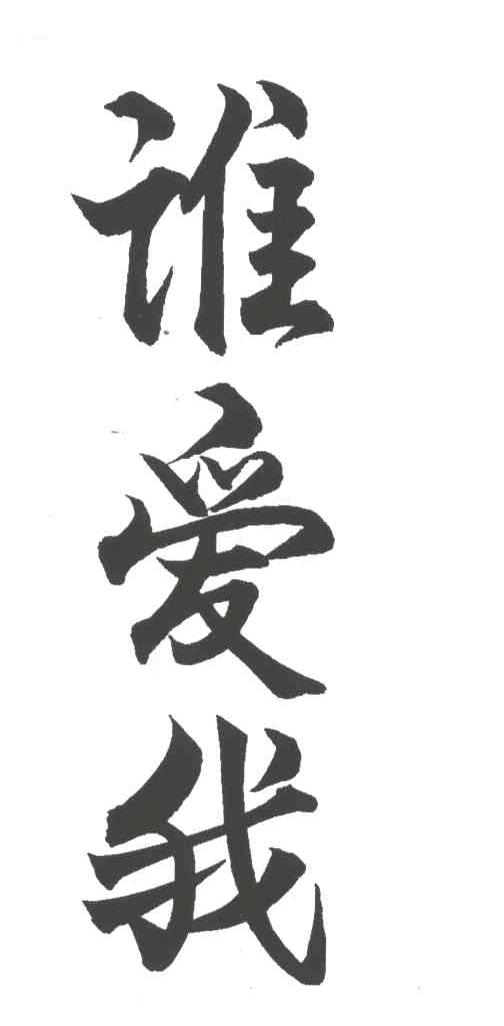 谁爱我